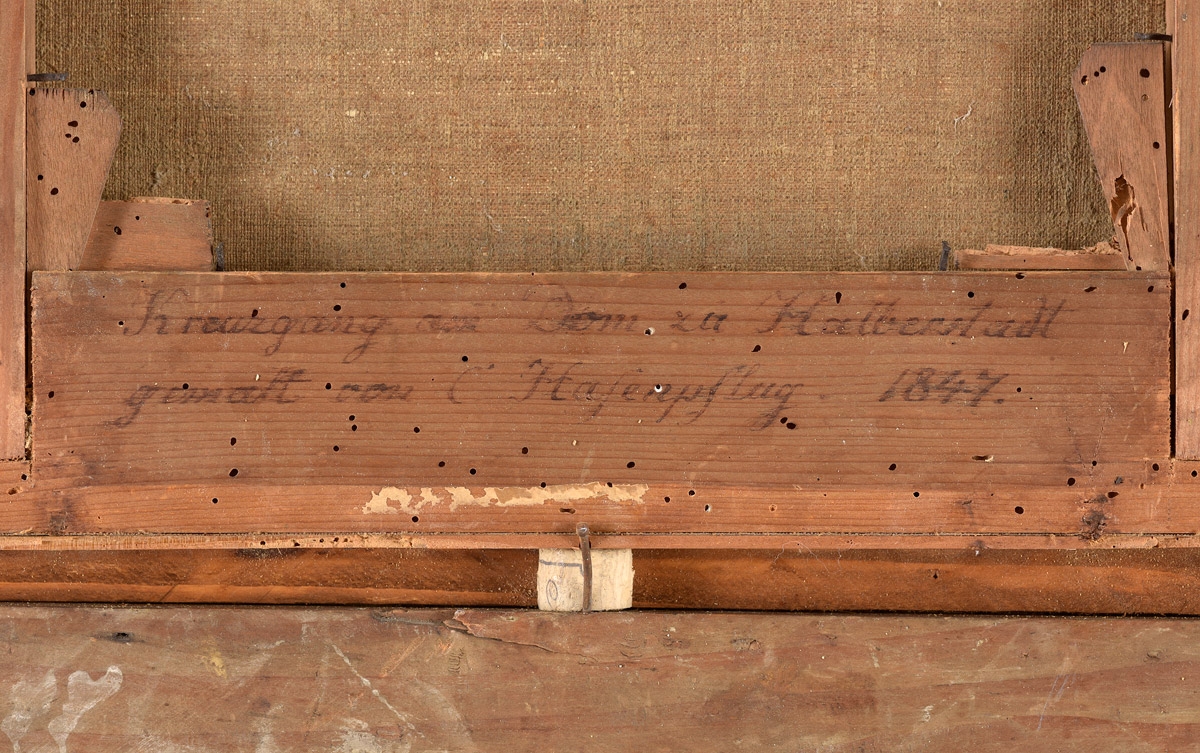 Kreuzgang am Dom zu Halberstadt
gemalt von C Hasenpflug. 1847.